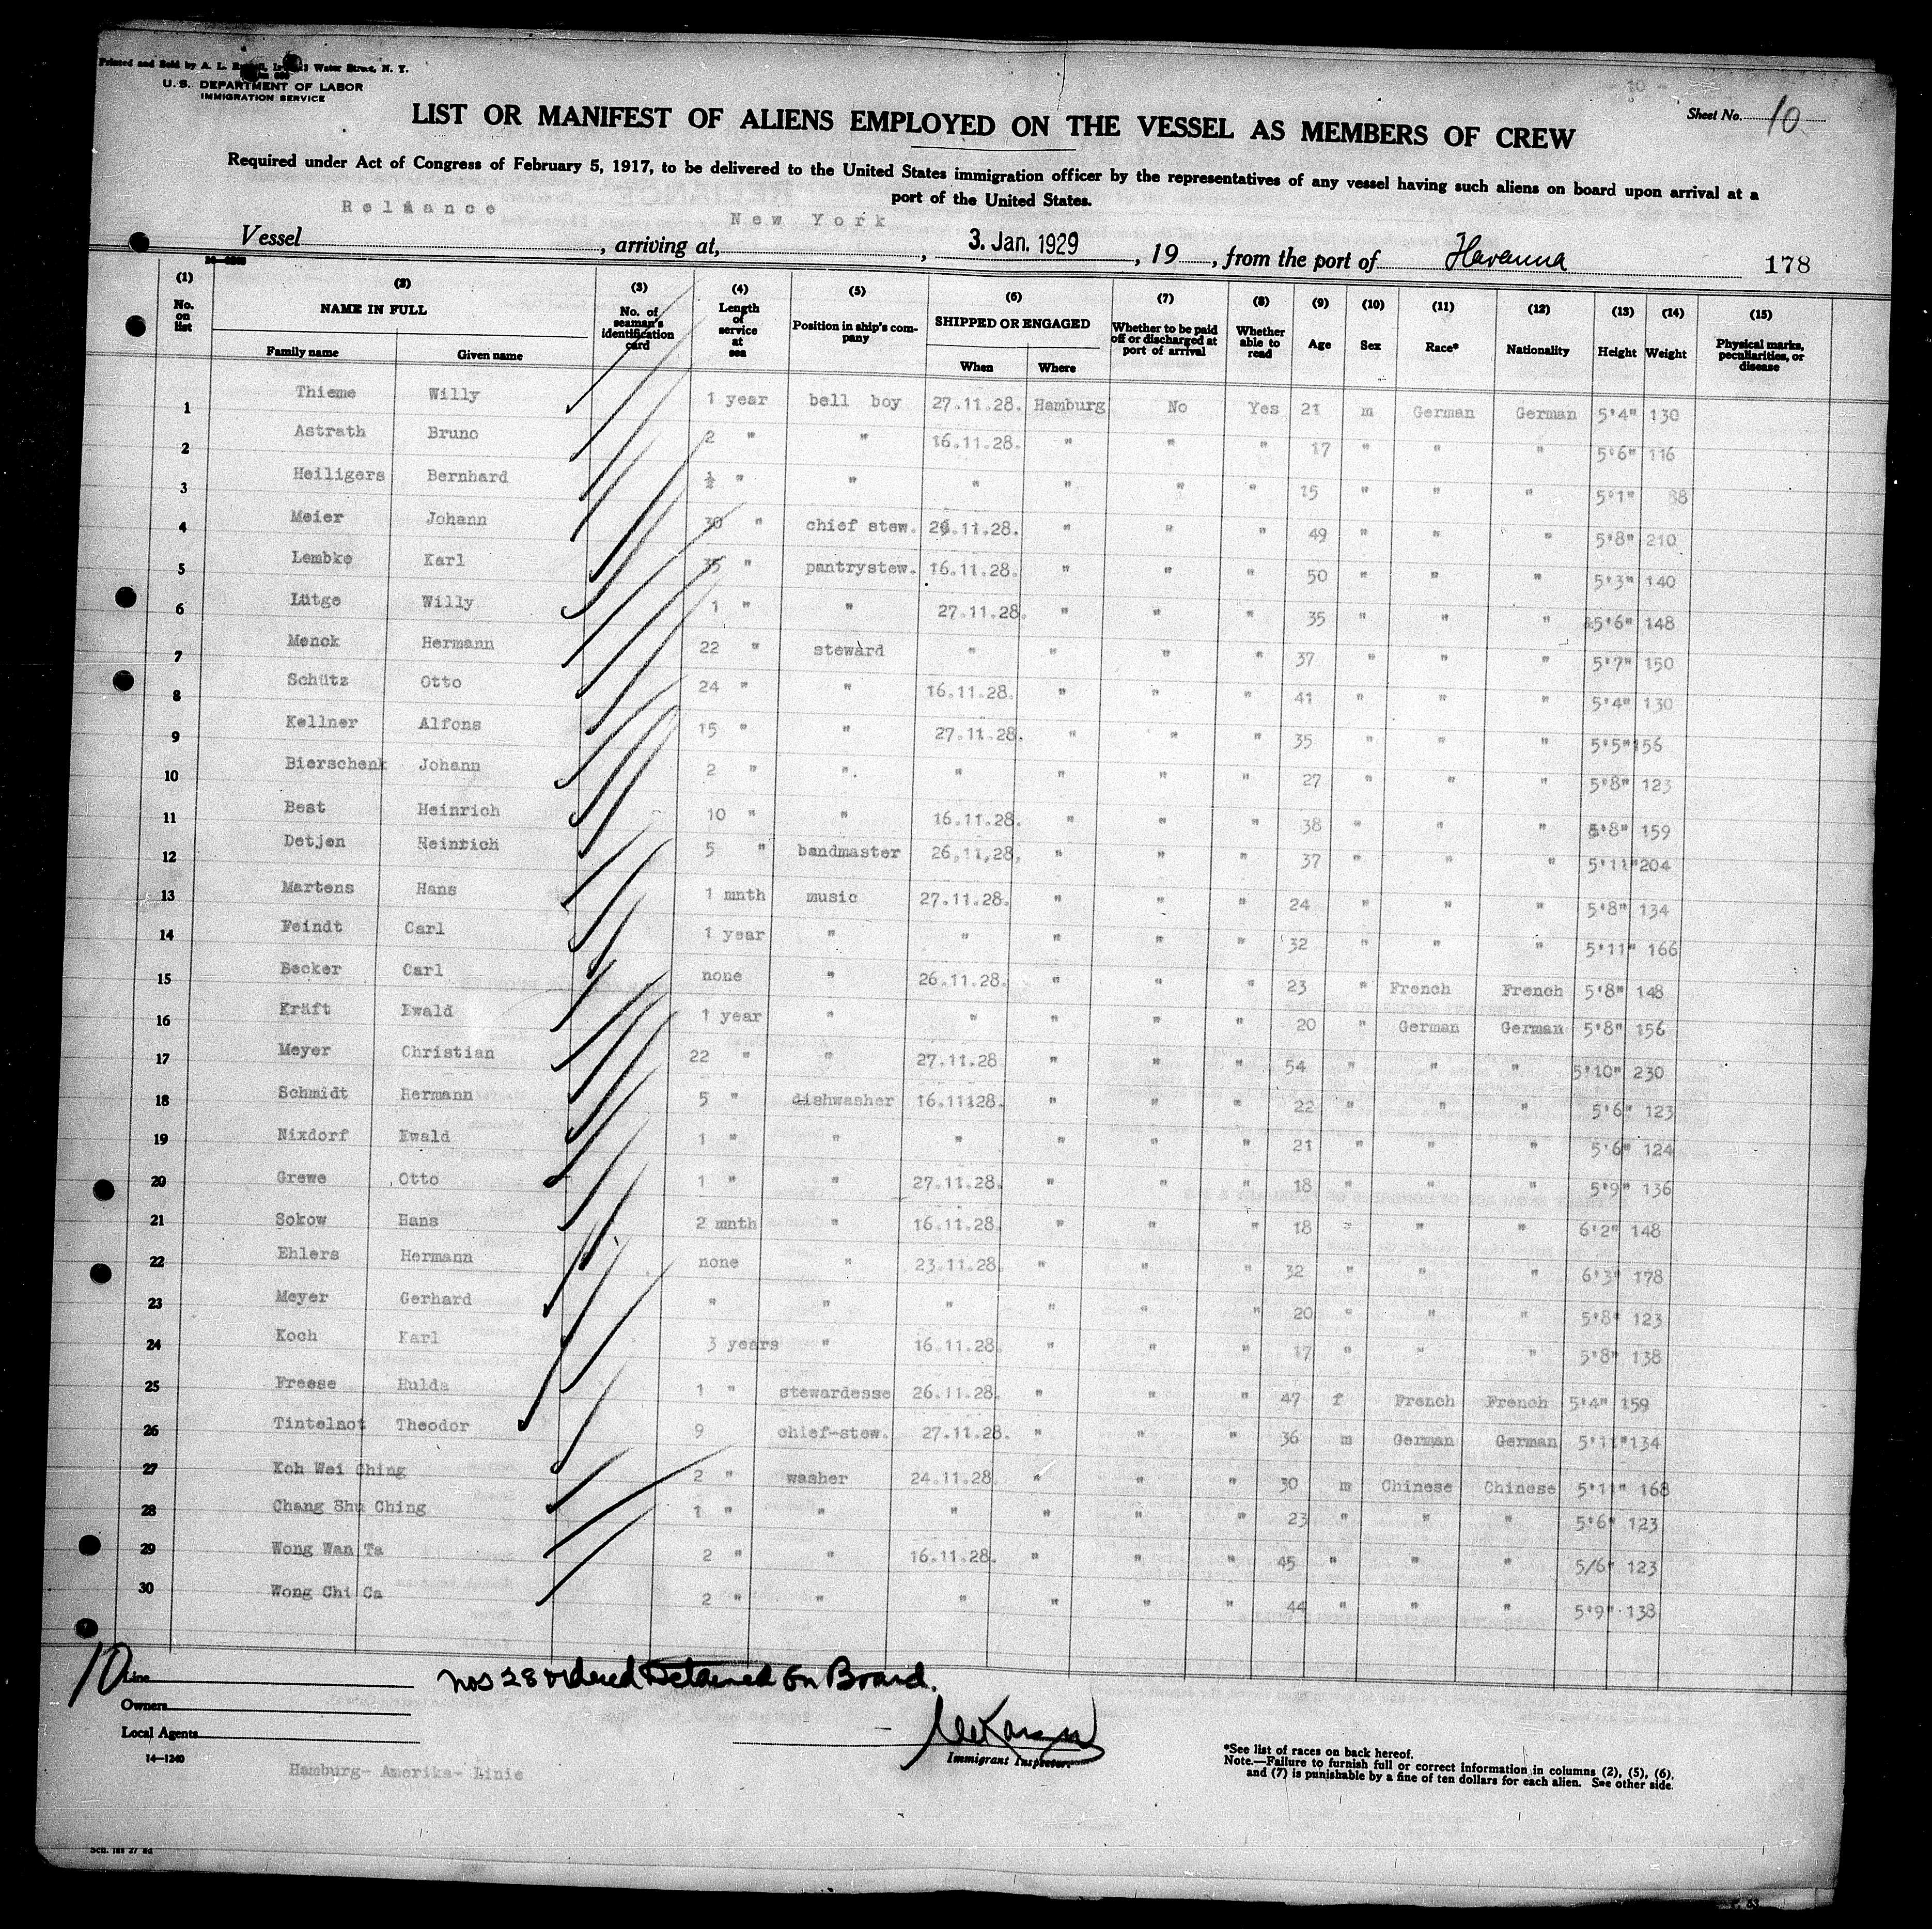 Printed and Sold by A. L. Water Street, N. Y.
U. S. DEPARTMENT OF LABOR
IMMIGRATION SERVICE
10
Sheet No. 10
LIST OR MANIFEST OF ALIENS EMPLOYED ON THE VESSEL AS MEMBERS OF CREW
Required under Act of Congress of February 5, 1917, to be delivered to the United States immigration officer by the representatives of any vessel having such aliens on board upon arrival at a
port of the United States.
Vessel Reliance, arriving at, New York, 3. Jan. 1929, 19, from the port of Havanna 178
14—1240
(1) (2) (3) (4) (5) (6) (7) (8) (9) (10) (11) (12) (13) (14) (15)
No. on list NAME IN FULL No. of seaman's identification card Length of service at sea Position in ship's company SHIPPED OR ENGAGED Whether to be paid off or discharged at port of arrival Whether able to read Age Sex Race* Nationality Height Weight Physical marks, peculiarities, or disease
Family name Given name When Where
1 Thieme Willy 1 year bell boy 27.11.28. Hamburg No Yes 21 m German German 5'4" 130
2 Astrath Bruno 2 " " 16.11.28. " " " 17 " " " 5'6" 116
3 Heiligers Bernhard ½ " " " " " " 15 " " " 5'1" 88
4 Meier Johann 30 " chief stew. 26.11.28. " " " 49 " " " 5'8" 210
5 Lembke Karl 35 " pantrystew. 16.11.28. " " " 50 " " " 5'3" 140
6 Lütge Willy 1 " " 27.11.28. " " " 35 " " " 5'6" 148
7 Menck Hermann 22 " steward " " " " 37 " " " 5'7" 150
8 Schütz Otto 24 " " 16.11.28. " " " 41 " " " 5'4" 130
9 Kellner Alfons 15 " " 27.11.28. " " " 35 " " " 5'5" 156
10 Bierschenk Johann 2 " ". " " " " 27 " " " 5'8" 123
11 Beat Heinrich 10 " " 16.11.28. " " " 38 " " " 5'8" 159
12 Detjen Heinrich 5 " bandmaster 26,11,28, " " " 37 " " " 5'11" 204
13 Martens Hans 1 mnth music 27.11.28. " " " 24 " " " 5'8" 134
14 Feindt Carl 1 year " " " " " 32 " " " 5'11" 166
15 Becker Carl none " 26.11.28. " " " 23 " French French 5'8" 148
16 Kräft Ewald 1 year " " " " " 20 " German German 5'8" 156
17 Meyer Christian 22 " " 27.11.28 " " " 54 " " " 5'10" 230
18 Schmidt Hermann 5 " dishwasher 16.11128. " " " 22 " " " 5'6" 123
19 Nixdorf Ewald 1 " " " " " " 21 " " " 5'6" 124
20 Grewe Otto 1 " " 27.11.28. " " " 18 " " " 5'9" 136
21 Sokow Hans 2 mnth " 16.11.28. " " " 18 " " " 6'2" 148
22 Ehlers Hermann none " 23.11.28. " " " 32 " " " 6'3" 178
23 Meyer Gerhard " " " " " " 20 " " " 5'8" 123
24 Koch Karl 3 years " 16.11.28. " " " 17 " " " 5'8" 138
25 Freese Hulda 1 " stewardesse 26.11.28. " " " 47 f French French 5'4" 159
26 Tintelnot Theodor 9 chief-stew. 27.11.28. " " " 36 m German German 5'11" 134
27 Koh Wei Ching 2 " washer 24.11.28. " " " 30 m Chinese Chinese 5'11" 168
28 Chang Shu Ching 1 " " " " " " 23 " " " 5'6" 123
29 Wong Wan Ta 2 " " 16.11.28. " " " 45 " " " 5/6" 123
30 Wong Chi Ca 2 " " " " " " 44 " " " 5'9" 138
10 Line
Nos 28 ordered Detained on Board.
Owners
Local Agents
14—1240
Immigrant Inspector.
Hamburg- Amerika- Linie
*See list of races on back hereof.
Note.—Failure to furnish full or correct information in columns (2), (5), (6),
and (7) is punishable by a fine of ten dollars for each alien. See other side.